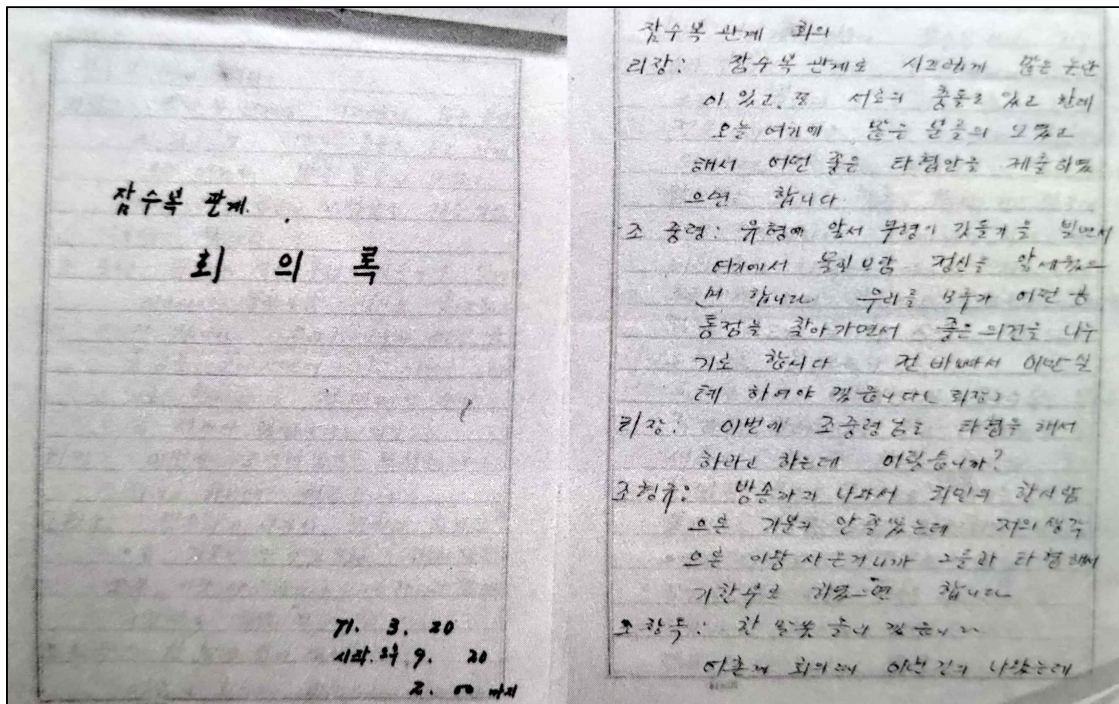 잠수복 관계.
회 의 록
71. 3. 20
시작 오후 9. 20
2. 00 까지
잠수복 관계 회의
리장: 잠수복 관계로 시끄럽게 많은 논란
이 있고 또 서로의 충돌도 있고 한데
오늘 여기에 많은 분들이 모였고
해서 어떤 좋은 타협안을 제출하였
으면 합니다
조 중령: 앞서 깃들기를 빌면서
여기에서 정신을 앞세웠으
며 합니다 우리들 모두가 어떤 공
통점을 찾아가면서 좋은 의견을 나누
기로 합니다 전 바빠서 이만 실
테 하여야 겠습니다
리장: 이번에 조중령님도 타협을 해서
하라고 하는데 어떻습니까?
방송까지 나와서 한사람
으론 기분이 안좋았는데 저의 생각
으론 이왕 사는거니까 그들과 타협해서
기한부로 하였으면 합니다
조창득: 한 말씀 겠습니다
회의때 나왔는데